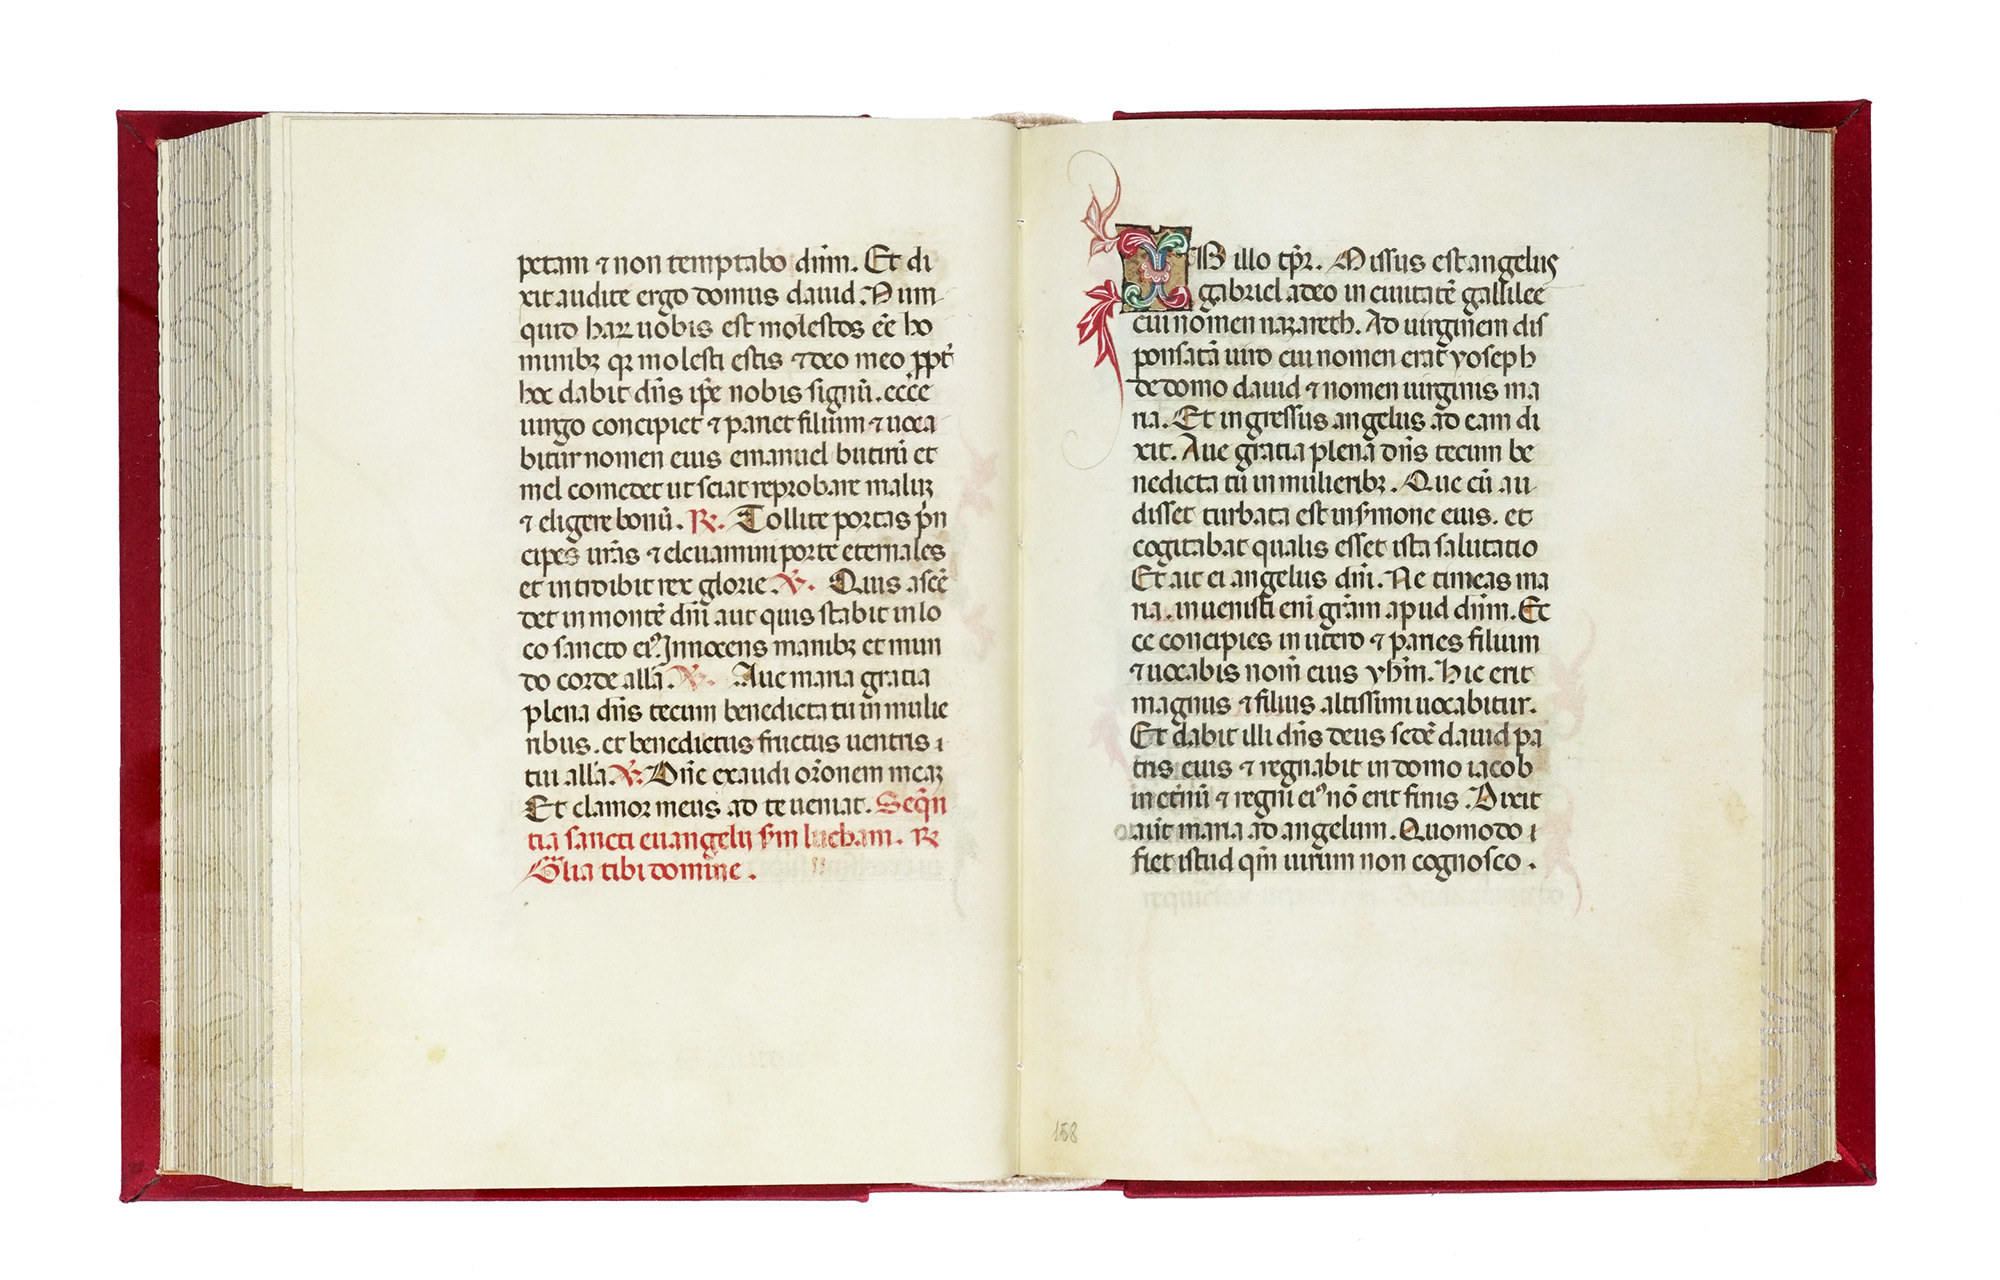 petam ⁊ non temptabo dñm. Et di
xit audite ergo domus dauid. Num
quid haꝛ uobis est molestos eē ho
minibꝫ qꝛ molesti estis ⁊ deo meo ꝓpt̄
hoc dabit dñs ip̄e nobis signū. ecce
uirgo concipiet ⁊ pariet filium ⁊ uoca
bitur nomen eius emanuel butirū et
mel comedet ut sciat reprobare maluꝫ
⁊ eligere bonū. R̃. Tollite portas p̄n
cipes ur̄as ⁊ eleuamini porte eternales
et introibit rex glorie. V̄. Quis ascē
det in montē dñi aut quis stabit in lo
co sancto eiꝰ. Innocens manibꝫ et mun
do corde alla. V̄. Aue maria gratia
plena dñs tecum benedicta tu in mulie
ribus. et benedictus fructus uentris
tui alla. V̄. Dñe exaudi or̄onem meaꝫ
Et clamor meus ad te ueniat. Seq̄n
tia sancti euangelij sc̄m lucham. R̃
Gl̄ia tibi domine.
IN illo tp̄r. Missus est angelus
gabriel a deo in ciuitatē gallilee
cui nomen nazareth. Ad uirginem dis
ponsatā uiro cui nomen erat yoseph
de domo dauid ⁊ nomen uirginis ma
ria. Et ingressus angelus ad eam di
xit. Aue gratia plena dñs tecum be
nedicta tū in mulieribꝫ. Que cū au
disset turbata est in sr̄mone eius. et
cogitabat qualis esset ista salutatio
Et ait ei angelus dñi. Ne timeas ma
ria. inuenisti eni gr̄am apud dñm. Ec
ce concipies in utero ⁊ paries filium
⁊ uocabis nom̄ eius yhm̄. Hic erit
magnus ⁊ filius altissimi uocabitur.
Et dabit illi dñs deus sedē dauid pa
tris eius ⁊ regnabit in domo iacob
in et̄nū ⁊ regni eiꝰ nō erit finis. Dixit
aūt maria ad angelum. Quomodo
fiet istud qm̄ uirum non cognosco.
158